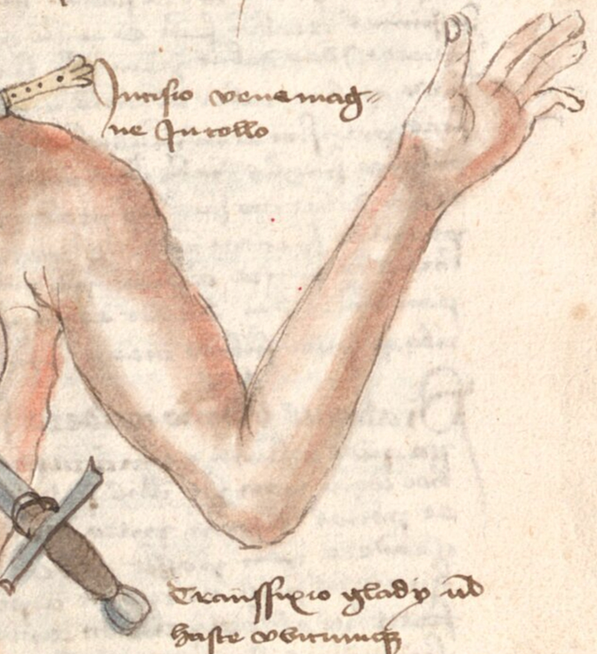 Incisio vene mag=
ne In collo
Transfixio glady ul
haste vbicumq